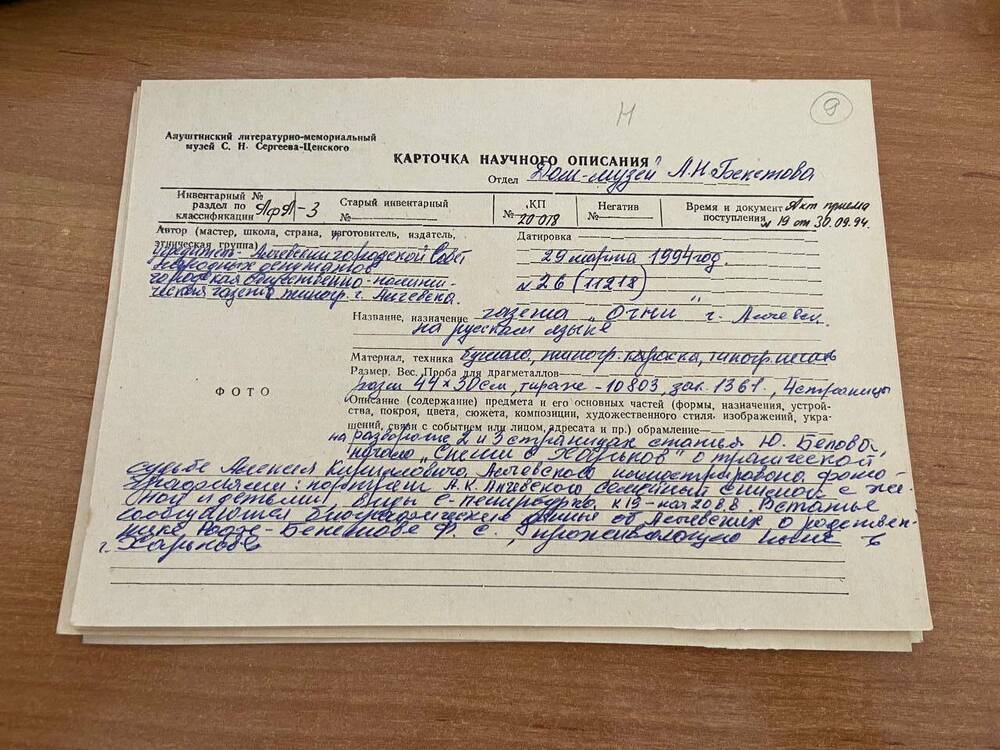 Н
9
Алуштинский литературно-мемориальный
музей С. Н. Сергеева-Ценского
КАРТОЧКА НАУЧНОГО ОПИСАНИЯ
Отдел Дом-музей А.Н. Бекетова
Инвентарный №
раздел по
классификации АфЛ-3
Старый инвентарный
№
КП
№ 20 018
Негатив
№
Время и документ Акт приема
поступления № 19 от 30.09.94.
Автор (мастер, школа, страна, изготовитель, издатель,
этническая группа)
учредитель Алчевский городской Совет
народных депутатов
городская общественно-полити-
ческая газета типогр. г. Алчевска.
Датировка
29 марта 1994 год.
№ 26 (11218)
Название, назначение газета "Огни" г. Алчевск.
на русском языке
Материал, техника бумага, типогр. краска, типогр. печать
Размер. Вес. Проба для драгметаллов
разм 44 x 30 см, тираж - 10803, зак. 1361, 4 страницы
ФОТО
Описание (содержание) предмета и его основных частей (формы, назначения, устрой-
ства, покроя, цвета, сюжета, композиции, художественного стиля изображений, укра-
шений, связи с событием или лицом, адресата и пр.) обрамление
на развороте 2 и 3 страницах статья Ю. Белова,
начало "Спеши в Харьков" о трагической
судьбе Алексея Кирилловича Алчевского иллюстрирована фото-
графиями: портрет А.К. Алчевского семейный снимок с же-
ной и детьми Виды С-Петербурга к. 19 - нач 20 в.в. В статье
сообщаются биографические данные об Алчевских о родствен-
нике Ф. С., проживающем ныне в
г. Харькове